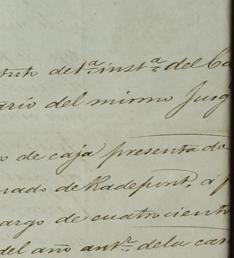 tuto de 1.ª inst.ª del Ca
ario del mismo Juzg
o de caja presentado
nado de Radepont, á p
argo de cuatrocient
del año ant.r de la can